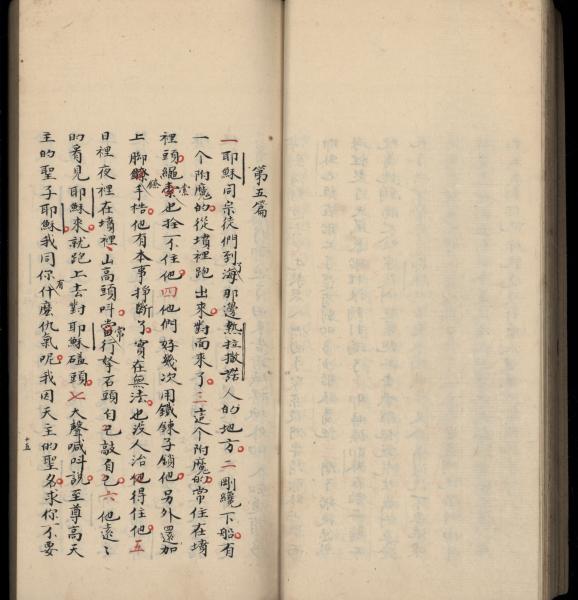 第五篇
一耶穌同宗徒們到了海那邊熱拉撒諾人的地方。二剛纔下船有
一个附魔的從墳裡跑出來。對面來了。三這个附魔的常住在墳
裡頭。繩索也拴不住他。四他們好幾次用鐵鍊子鎖他。另外還加
上脚鐐手梏。他有本事掙斷了。實在無法。也没人治他得住他。五
日裡夜裡在墳裡、山高頭呌當常行拏石頭自己敲自己。六他遠遠
的看見耶穌來。就跑上去對耶穌磕頭。七大聲喊呌。說至尊高天
主的聖子耶穌。我同你有什麼仇氣呢。我因天主的聖名。求你不要
十五